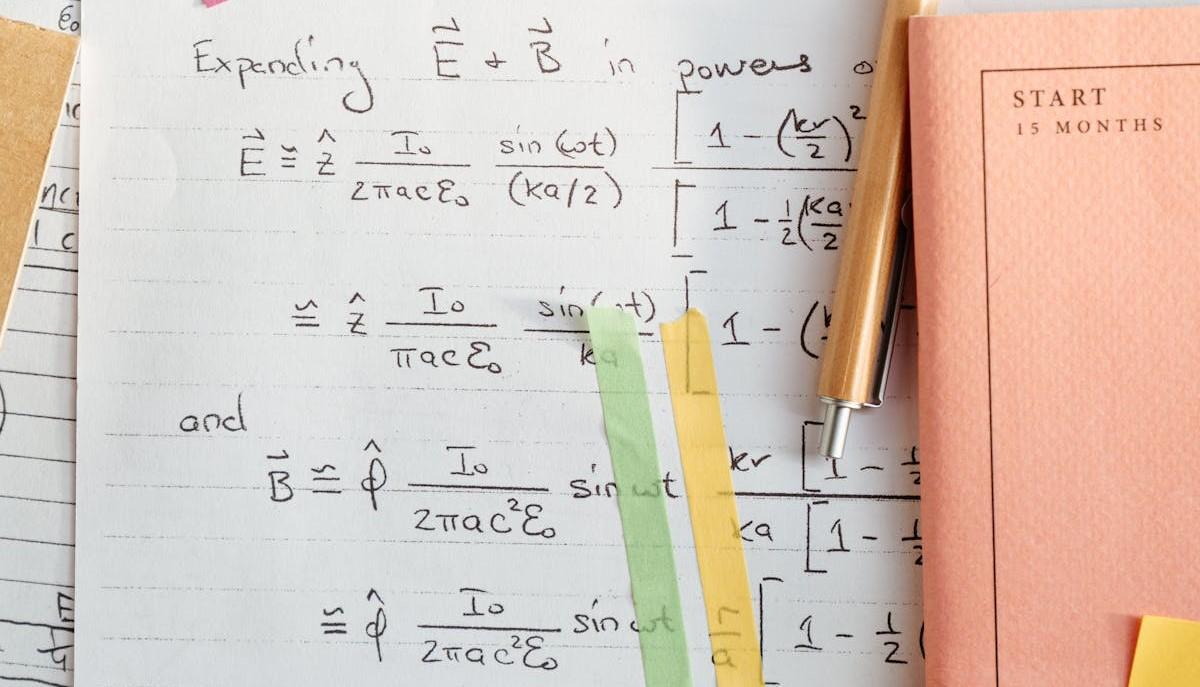 Expanding E⃗ + B⃗ in powers
E⃗ ≅ ẑ I₀/(2πacε₀) sin(ωt)/(ka/2) [1 - (kr/2)²]/[1 - ½(ka/2
≅ ẑ I₀/(πacε₀) sin(ωt)/ka [1 - (
and
B⃗ ≅ φ̂ I₀/(2πac²ε₀) sin ωt kr[1 - ½/ka[1 - ½
≅ φ̂ I₀/(2πac²ε₀) sin ωt r/a [1 - ½(
START
15 MONTHS